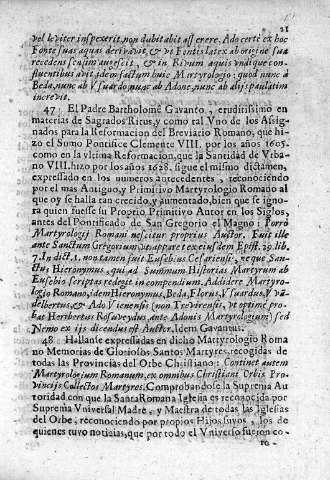 21
vel leviter inspexerit, non dubitabit asserere. Ado certè ex hoc
Fonte suas aquas derivavit, & vt Fontis latex ab origine sua
recedens sensim augescit, & in Rivum aquis vndique con-
fluentibus avit, idem factum huic Martyrologio: quod nunc à
Beda, nunc ab Vsuardo, nunc ab Adone, nunc ab alijs paulatim
increvit.
47. El Padre Bartholome Gavanto, eruditissimo en
materias de Sagrados Ritus, y como tal Vno de los Assig-
nados para la Reformacion del Breviario Romano, que hi-
zo el Sumo Pontifice Clemente VIII. por los años 1605.
como en la vltima Reformacion, que la Santidad de Vrba-
no VIII. hizo por los años 1628. sigue el mismo dictamen,
expressado en los numeros antecedentes, reconociendo
por el mas Antiguo, y Primitivo Martyrologio Romano al
que oy se halla tan crecido, y aumentado, bien que se igno-
ra quien fuesse su Proprio Primitivo Autor en los Siglos,
antes del Pontificado de San Gregorio el Magno: Porrò
Martyrologij Romani nescitur proprius Auctor. Fuit ille
ante Sanctum Gregorium, vt apparet ex eiusdem Epist. 29. lib.
7. Indict. 1. non tamen fuit Eusebius Cesariensis, neque San-
ctus Hieronymus, qui ad Summum Historias Martyrum ab
Eusebio scriptas redegit in compendium. Addidere Martyro-
logio Romano, idem Hieronymus, Beda, Florus, Vsuardus, Va-
delbertus, & Ado Vienensis (non Trevirensis, vt optimè pro-
bat Heribertus Rosuveydus, ante Adonis Martyrologium) sed
Nemo ex ijs dicendus est Auctor. Idem Gavantus.
48 Hallanse expressadas en dicho Martyrologio Roma
no Memorias de Gloriosos Santos Martyres, recogidas de
todas las Provincias del Orbe Christiano: Continet autem
Martyrologium Romanum, ex omnibus Christiani Orbis Pro-
vincijs Collectos Martyres. Comprobandose la Suprema Au-
toridad con que la Santa Romana Iglesia es reconocida por
Suprema Vniversal Madre, y Maestra de todas las Iglesias
del Orbe, reconociendo por proprios Hijos suyos, los de
quienes tuvo noticias, que por todo el Vniverso fueron co-
ro-